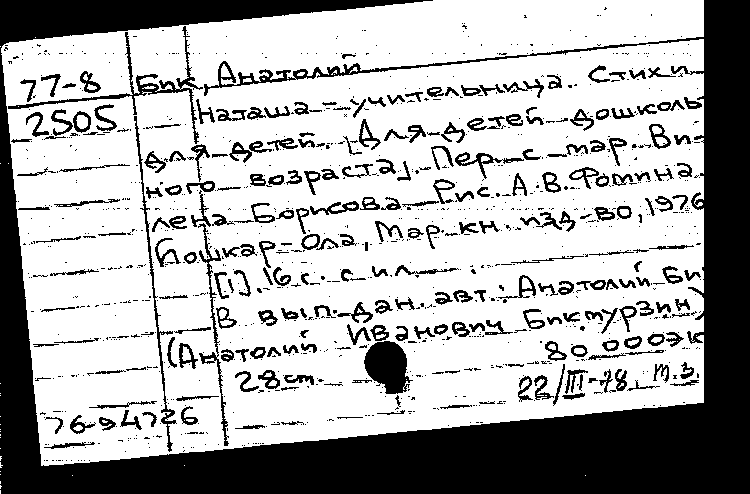 77-8 Бик, Анатолий
2505 Наташа - учительница. Стихи
для детей. [Для детей дошколь-
ного возраста]. Пер. с мар. Ви-
лена Борисова. Рис. А.В. Фомина.
Йошкар-Ола, Мар. кн. изд-во, 1976
[1], 16 с. с ил.
В вып. дан. авт.: Анатолий Би
(Анатолий Иванович Биктурзин)
28 см. 80 000 эк
22/III-78. М.З.
76-94726